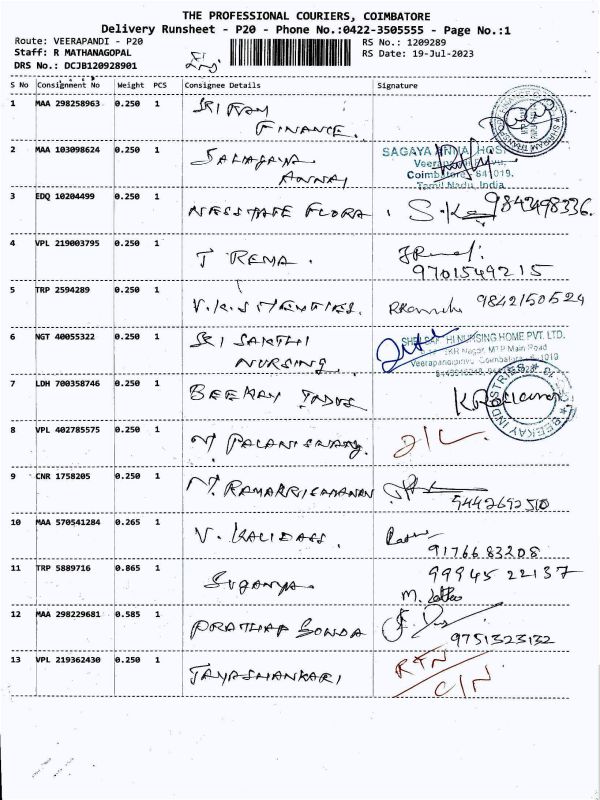 THE PROFESSIONAL COURIERS, COIMBATORE
Delivery Runsheet - P20 - Phone No.:0422-3505555 - Page No.:1
Route: VEERAPANDI - P20
RS No.: 1209289
Staff: R MATHANAGOPAL
RS Date: 19-Jul-2023
DRS No.: DCJB120928901
S No Consignment No Weight PCS Consignee Details Signature
1 MAA 298258963 0.250 1 SRI RAM
FINANCE.
2 MAA 103098624 0.250 1 SAHAGAYA
ANNAI
SAGAYA ANNAI HOS
Coimbatore 641019.
Tamil Nadu, India
3 EDQ 10204499 0.250 1 NESSTATE FLORA. 9843498336.
4 VPL 219003795 0.250 1 T REMA.
9701549215
5 TRP 2594289 0.250 1 9842150524
6 NGT 40055322 0.250 1 SRI SAKTHI
NURSING.
HI NURSING HOME PVT. LTD.
TKR Nagar, MTP Main Road
7 LDH 700358746 0.250 1 BEEKAY INDUS
BEEKAY INDUSTRIES
8 VPL 402785575 0.250 1 N. PALANISAMY.
9 CNR 1758205 0.250 1 N. RAMAKRISHNANAN
9442692510
10 MAA 570541284 0.265 1 V. KALIDASS.
9176683208
11 TRP 5889716 0.865 1 SUGANYA. 99945 22137
12 MAA 298229681 0.585 1 PRATHAP BONDA
9751323132
13 VPL 219362430 0.250 1 JAYASHANKARI RTN
C/N